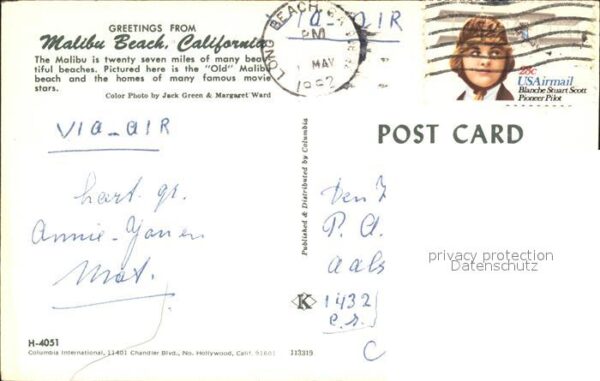 GREETINGS FROM
Malibu Beach, California
The Malibu is twenty seven miles of many beau-
tiful beaches. Pictured here is the "Old" Malibu
beach and the homes of many famous movie
stars.
Color Photo by Jack Green & Margaret Ward
VIA-AIR
LONG BEACH, CA
PM
MAY
1982
28c
USAirmail
Blanche Stuart Scott
Pioneer Pilot
VIA-AIR
POST CARD
hart. gr.
Annie-
Mat.
Published & Distributed by Columbia
P. A.
1432
C
K
privacy protection
Datenschutz
H-4051
Columbia International, 11401 Chandler Blvd., No. Hollywood, Calif. 91601 113319